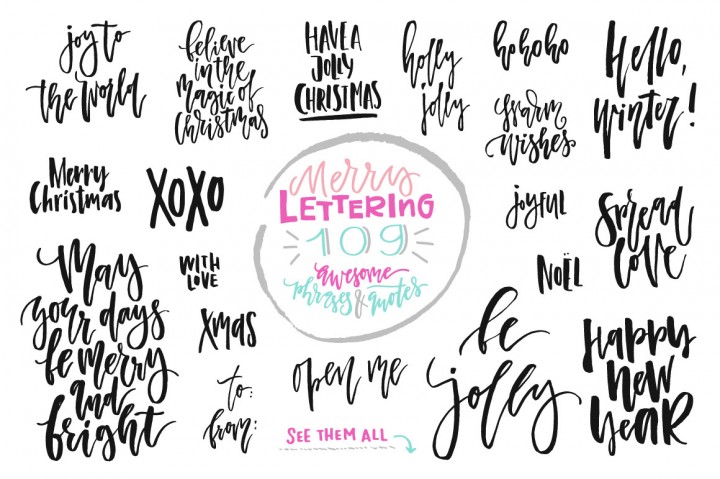 joy to
the world
believe
in the
magic of
Christmas
HAVE A
JOLLY
CHRISTMAS
holly
jolly
hohoho
warm
wishes
Hello,
winter!
Merry
Christmas
XOXO
Merry
LETTERING
109
awesome
phrases & quotes
joyful
Spread
love
NOËL
May
your days
be merry
and
bright
WITH
LOVE
Xmas
to:
from:
open me
SEE THEM ALL
be
jolly
Happy
New
Year